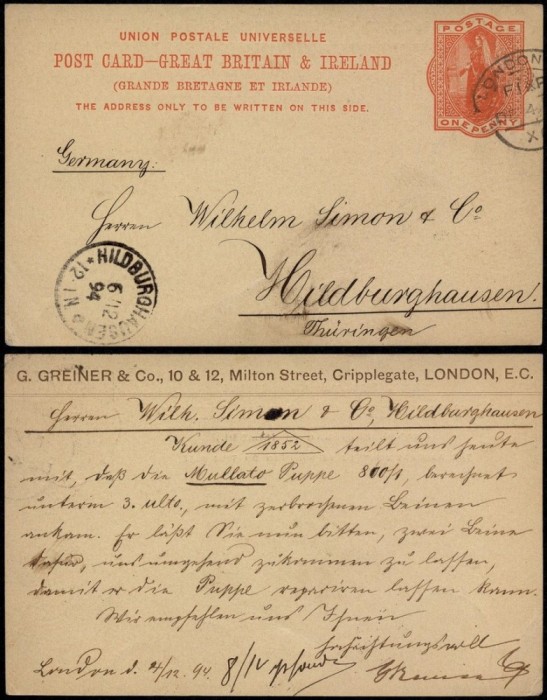 UNION POSTALE UNIVERSELLE
POST CARD—GREAT BRITAIN & IRELAND
(GRANDE BRETAGNE ET IRLANDE)
THE ADDRESS ONLY TO BE WRITTEN ON THIS SIDE.
POSTAGE
ONE PENNY
LONDON
Germany:
Herren Wilhelm Simon & Co
Hildburghausen.
Thüringen
HILDBURGHAUSEN
6/12
94
G. GREINER & Co., 10 & 12, Milton Street, Cripplegate, LONDON, E.C.
Herren Wilh. Simon & Co, Hildburghausen
Kunde 1852 teilt uns heute
mit, daß die Mullato Puppe 800/1, berechnet
unterm 3. ulto, mit zerbrochenen Beinen
ankam. Er läßt Sie nun bitten, zwei Beine
dafür, uns umgehend zukommen zu lassen,
damit er die Puppe repariren lassen kann.
Wir empfehlen uns Ihnen
Hochachtungsvoll
London d. 4/12. 94. 8/12